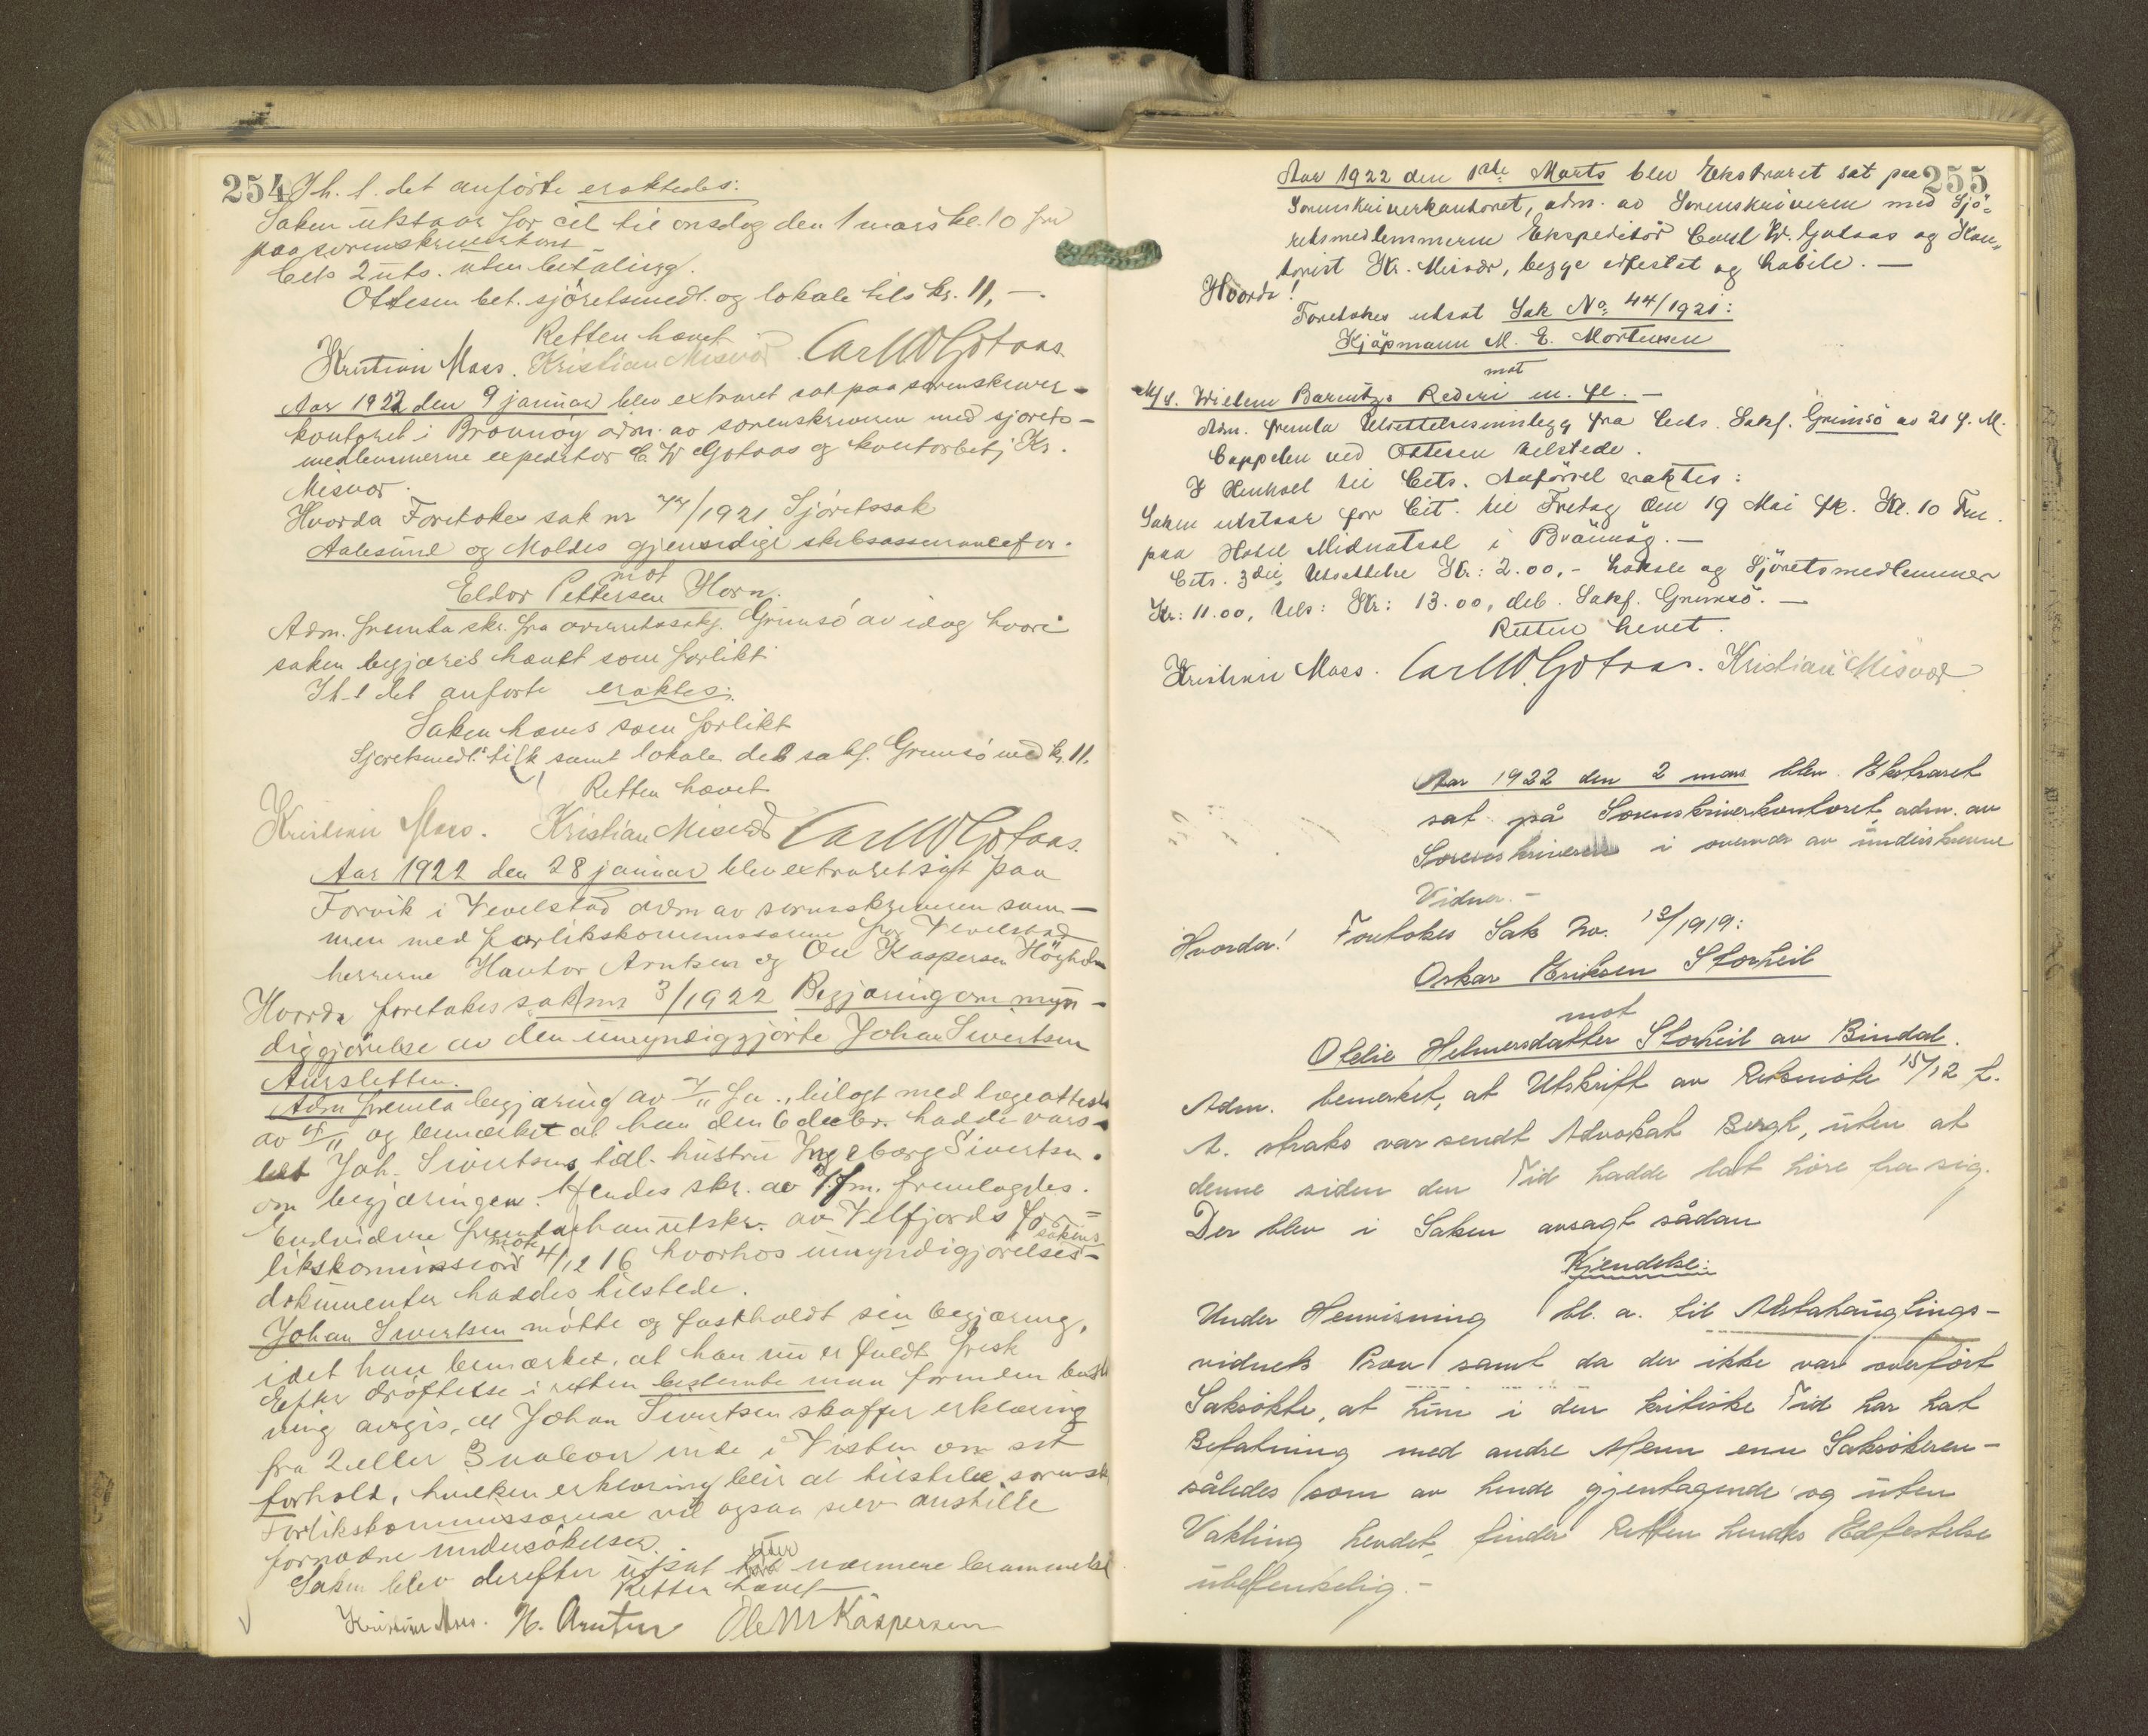 254 I h. t. det anførte eraktedes:
Saken utstaar for cit til onsdag den 1 mars kl. 10 fm
paa sorenskriverkont
Cits 2 uts. uten betaling.
Ottesen bet. sjøretsmedl. og lokale tils kr. 11,-.
Retten hævet
Kristian Moss. Kristian Misvær Carl W Gotaas.
Aar 1922 den 9 januar blev extraret sat paa sorenskriver-
kontoret i Brønnøy adm. av sorenskriveren med sjørets-
medlemmerne expeditør C. W Gotaas og kontorbetj Kr.
Misvær.
Hvorda Foretokes sak nr 44/1921 Sjøretssak
Aalesund og Moldes gjensidige skibsassurancefor.
mot
Eldor Pettersen Horn.
Adm. fremla skr. fra overretssakf. Grimsø av idag hvori
saken begjæres hævet som forlikt
I h-t det anførte eraktes:
Saken hæves som forlikt
Sjøretsmedl. tilk samt lokale deb sakf. Grimsø med kr. 11.
Retten hævet
Kristian Moss. Kristian Misvær Carl W Gotaas.
Aar 1922 den 28 januar blev extraret sat paa
Forvik i Vevelstad adm av sorenskriveren sam-
men med forlikskommissærene fra Vevelstad
herrerne Hantor Arntsen og Ole Kaspersen Høyholm
Hvorda foretokes sak nr 3/1922 Begjæring om myn-
diggjørelse av den umyndiggjorte Johan Sivertsen
Aursletten.
Adm fremla begjæring av /11 f.a., bilagt med lægeattest
av /11 og bemærket at han den 6 decbr. hadde vars-
let Joh. Sivertsens tidl. hustru Ingeborg Sivertsen
om begjæringen. Hendes skr. av f.m. fremlagdes.
Endvidere fremla han utskr. av Velfjords for-
likskommission møte 4/12 16 hvorhos umyndigjørelses- sakens
dokumenter haddes tilstede.
Johan Sivertsen møtte og fastholdt sin begjæring,
idet han bemærket, at han nu er fuldt frisk
Efter drøftelse i retten bestemte man førinden beslut
ning avgis, at Johan Sivertsen skaffer erklæring
fra 2 eller 3 naboer inde i Visten om sit
forhold, hvilken erklæring blir at tilstille sorenskr
Forlikskommissærene vil ogsaa selv anstille
fornødne undersøkelser.
Saken blev derefter utsat uten nærmere berammelse
Retten hævet
Kristian Moss. H. Arntsen Ole M Kaspersen
255
Aar 1922 den 1ste Marts blev Ekstraret sat paa
Sorenskriverkontoret, adm. av Sorenskriveren med Sjø-
retsmedlemmerne Ekspeditør Carl W. Gotaas og Kon-
torist Kr. Misvær, begge edfestet og habile. —
Hvorda!
Foretokes utsat Sak No. 44/1921:
Kjøpmann M. E. Mortensen
mot
M/S. Willem Barentz's Rederi m. fl. —
Adm. fremla Utsættelsesinnlegg fra Cits. Sakf. Grimsø av 21 f. M.
Cappelen ved Ottesen tilstede.
I Henhold til Cits. Anførsel eraktes:
Saken utstaar for Cit. til Fredag den 19 Mai fk. Kl. 10 Fm.
paa Hotel Midnatsol i Brønnøy. —
Cits. 3die Utsættelse Kr: 2.00, - Lokale og Sjøretsmedlemmer
Kr: 11.00, tils: Kr: 13.00, deb. Sakf. Grimsø. —
Retten hevet.
Kristian Moss. Carl W. Gotaas. Kristian Misvær
Aar 1922 den 2 mars blev Ekstraret
sat på Sorenskriverkontoret, adm. av
Sorenskriveren i overvær av underskrevne
Vidner. —
Hvorda! Foretokes Sak No. 13/1919:
Oskar Eriksen Storheil
mot
Otelie Helmersdatter Storheil av Bindal.
Adm. bemerket, at Utskrift av Retsmøte 15/12 f.
A. straks var sendt Advokat Bergh, uten at
denne siden den Tid hadde lat høre fra sig.
Der blev i Saken avsagt sådan
Kjendelse:
Under Henvisning bl. a. til Avtahængtings-
vidnets Prov samt da der ikke var overført
Saksøkte, at hun i den kritiske Tid har hat
Befatning med andre Menn enn Saksøkeren -
således som av hende gjentagende og uten
Vakling hevdet, finder Retten hendes Edfestelse
ubetenkelig. -